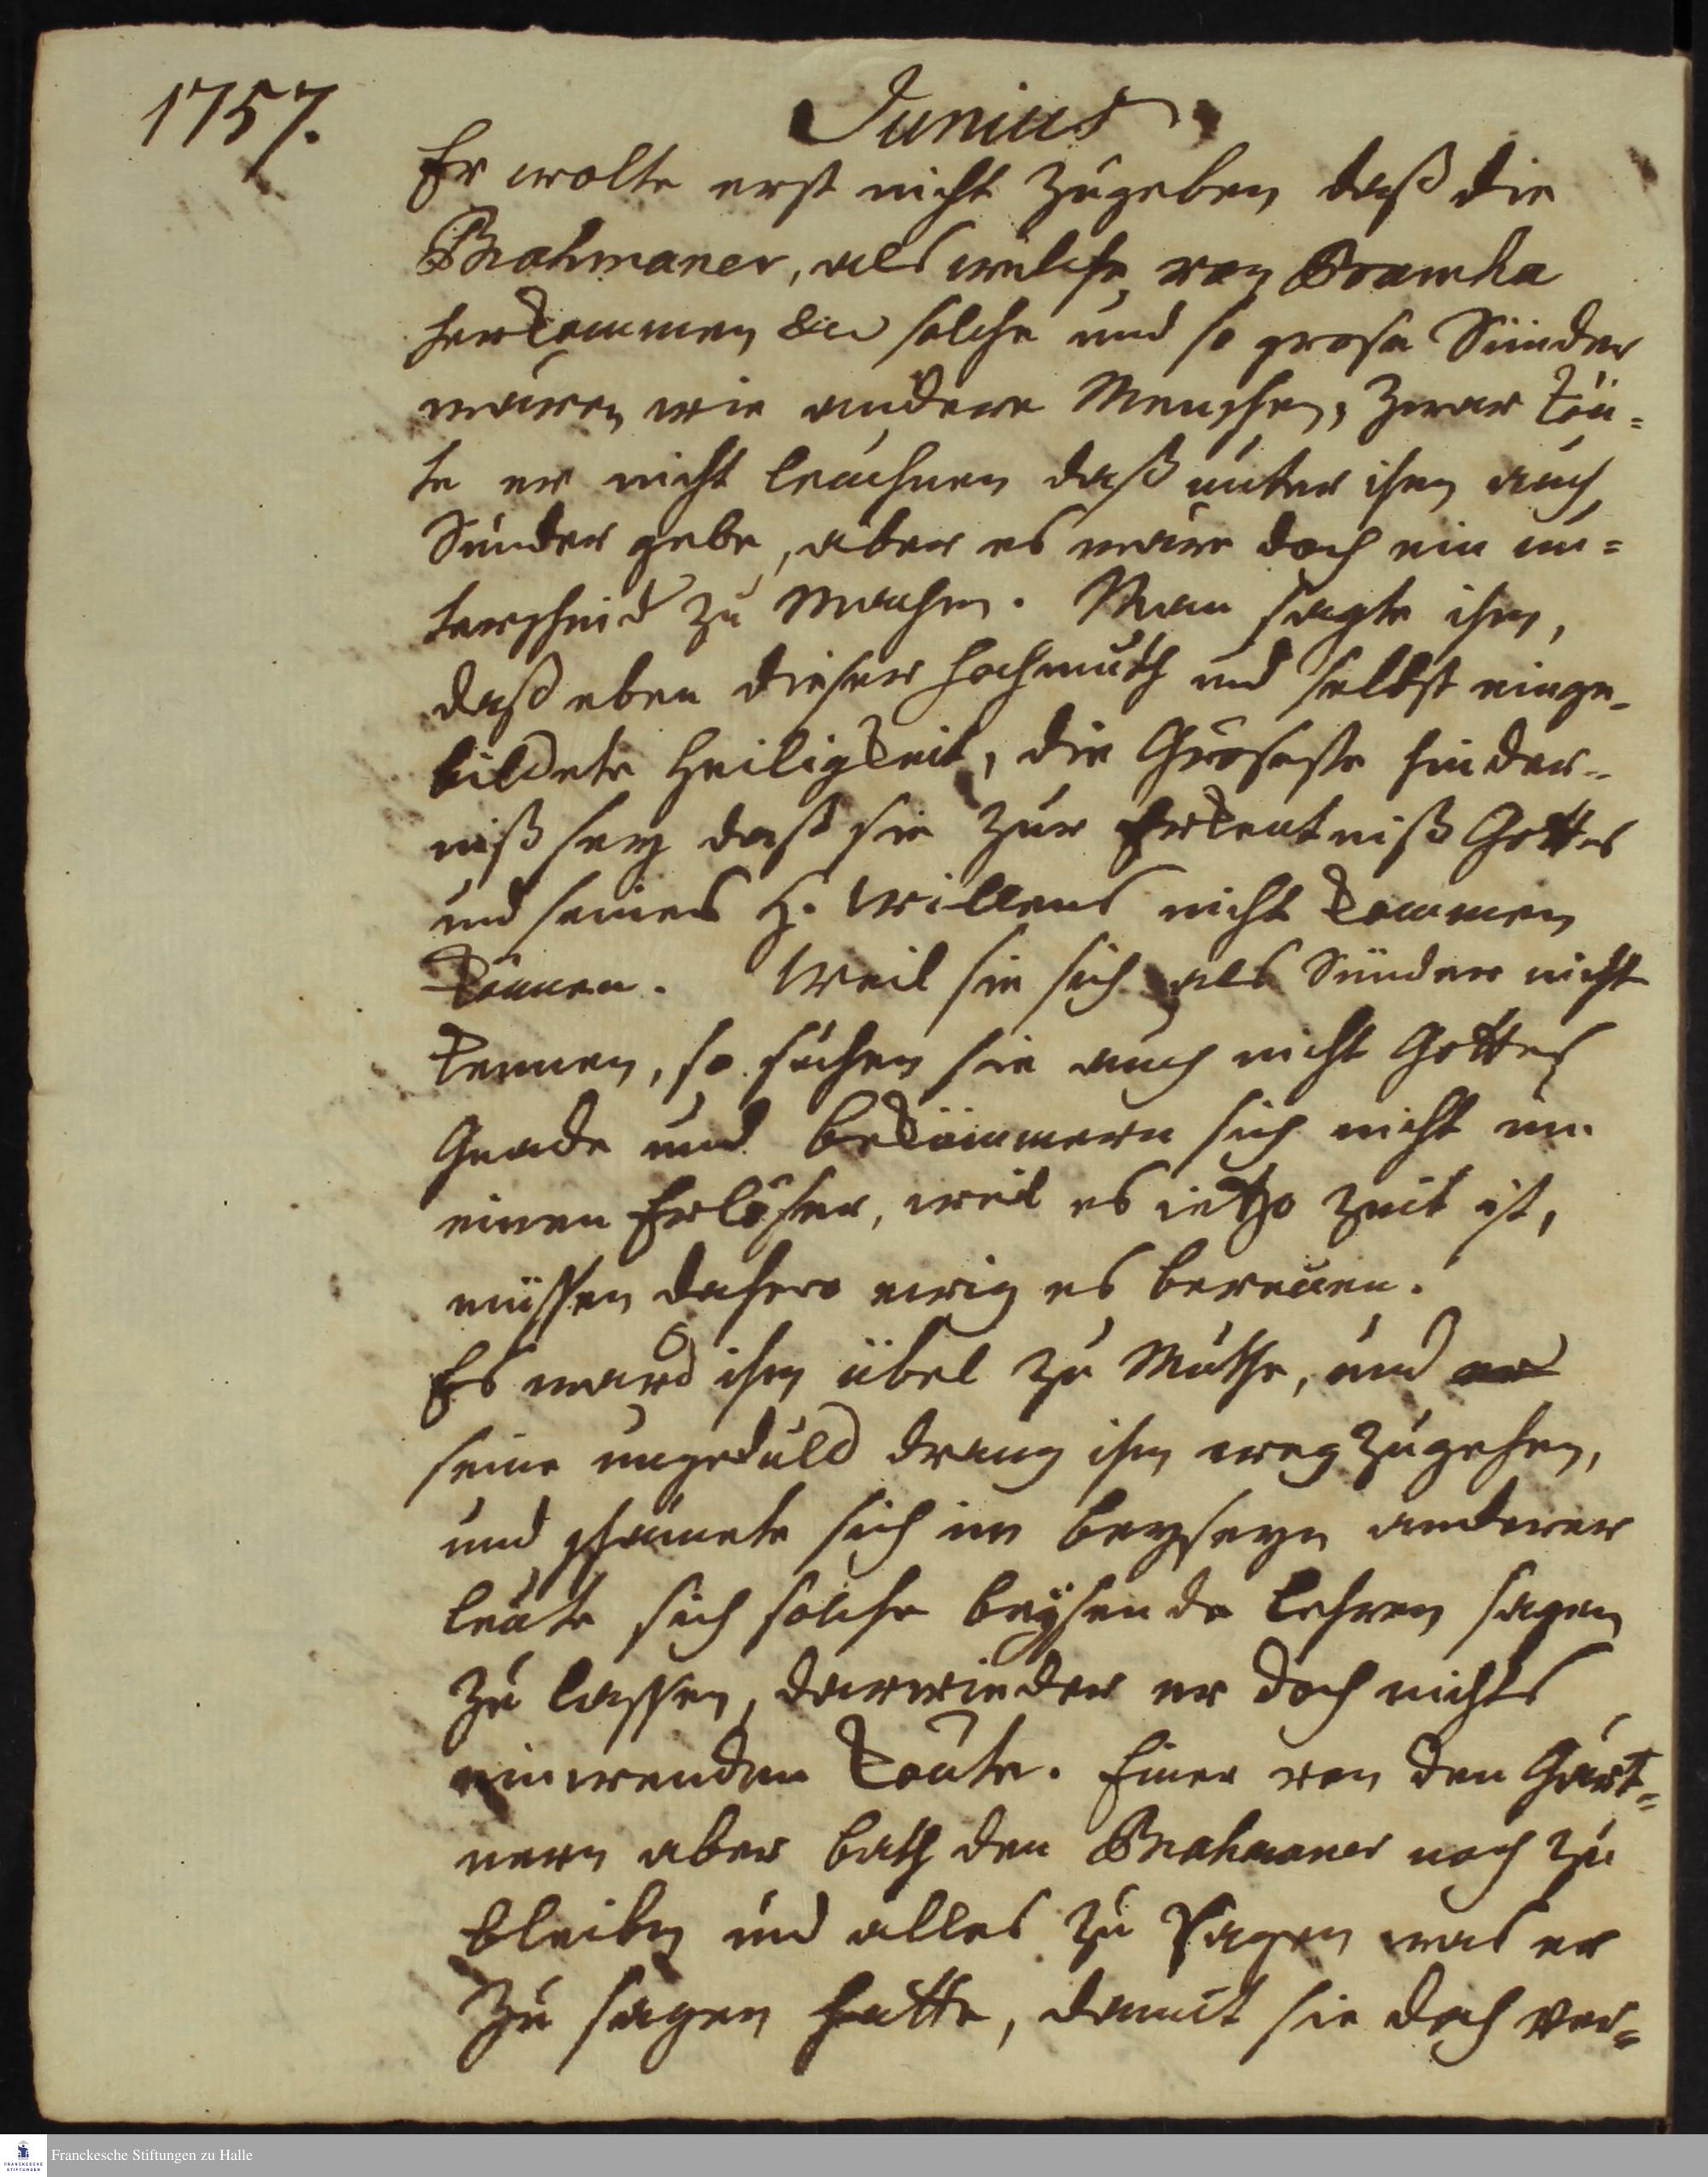 1757.
Junius
Er wolte erst nicht zugeben daß die
Brahmaner, als welche von Bramha
herkommen &c solche und so grose Sünder
wären wie andere Menschen, zwar kön=
te er nicht leuchnen daß unter ihm auch
Sünder gebe, aber es wäre doch ein un=
terscheid zu machen. Man sagte ihm,
daß eben dieser Hochmuth und selbst einge-
bildete Heiligkeit, die Gröseste hinder-
niß sey daß sie zur Erkentniß Gottes
und seines H. Willens nicht kommen
können. Weil sie sich als Sünder nicht
kennen, so suchen sie auch nicht Gottes
Gnade und bekümmern sich nicht um
einen Erlöser, weil es ietzo Zeit ist,
müssen dahero ewig es bereuen.
Es ward ihm übel zu Muthe, und er
seine ungeduld drang ihm wegzugehen,
und schämete sich im beyseyn anderer
leute sich solche beysende Lehren sagen
zu lassen, darwieder er doch nichts
einwenden konte. Einer von den Gärt=
nern aber bath den Brahmaner noch zu
bleiben und alles zu sagen was er
zu sagen hatte, damit sie doch ver=
Franckesche Stiftungen zu Halle
FRANCKESCHE
STIFTUNGEN